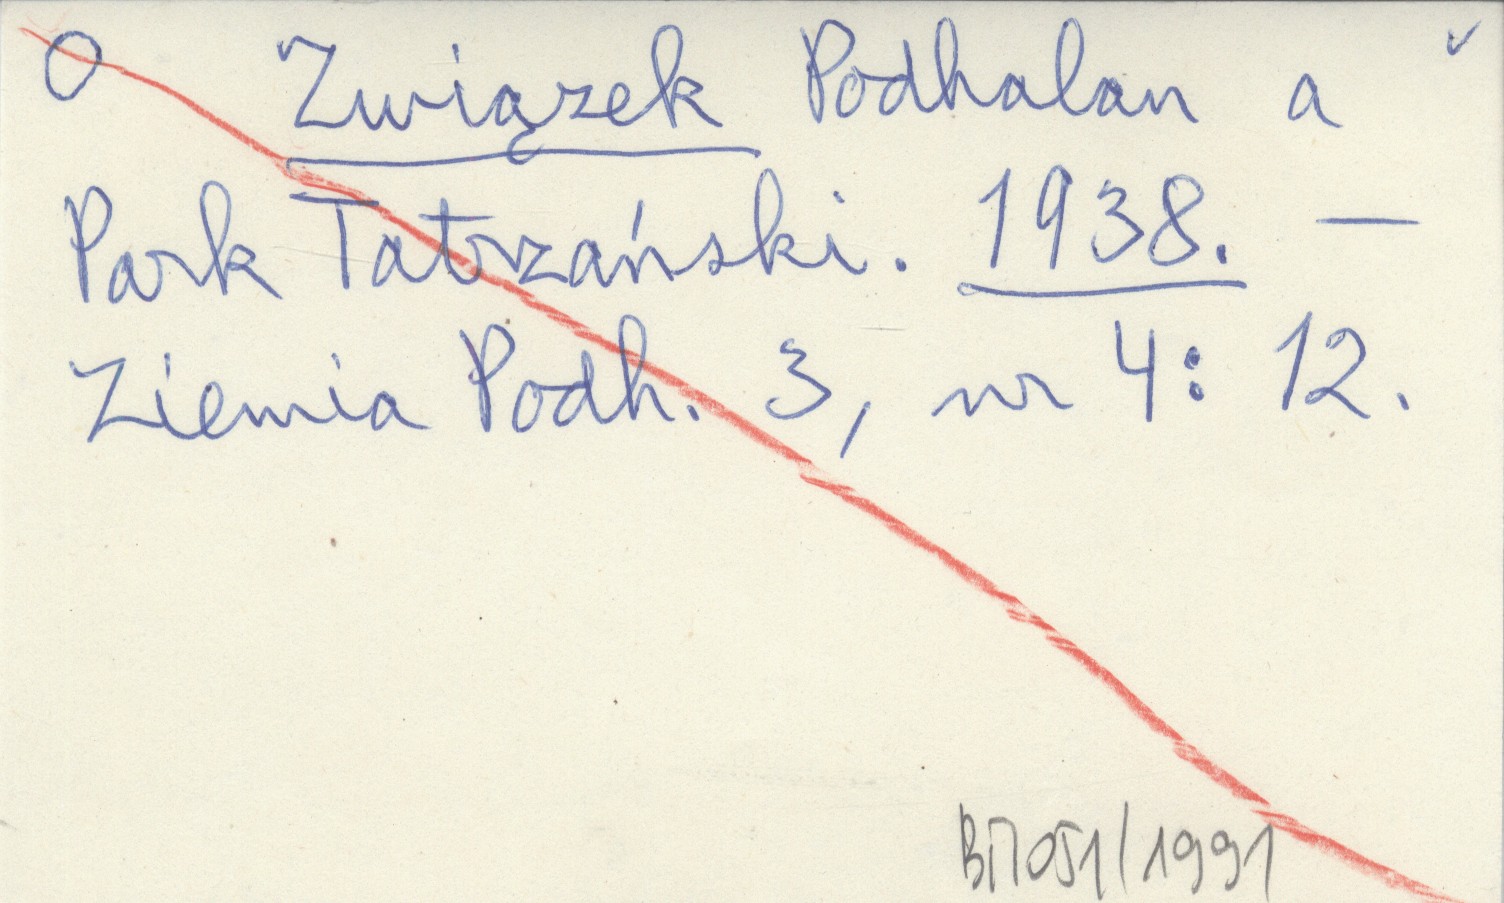 O Związek Podhalan a ✓
Park Tatrzański. 1938. —
Ziemia Podh. 3, nr 4: 12.